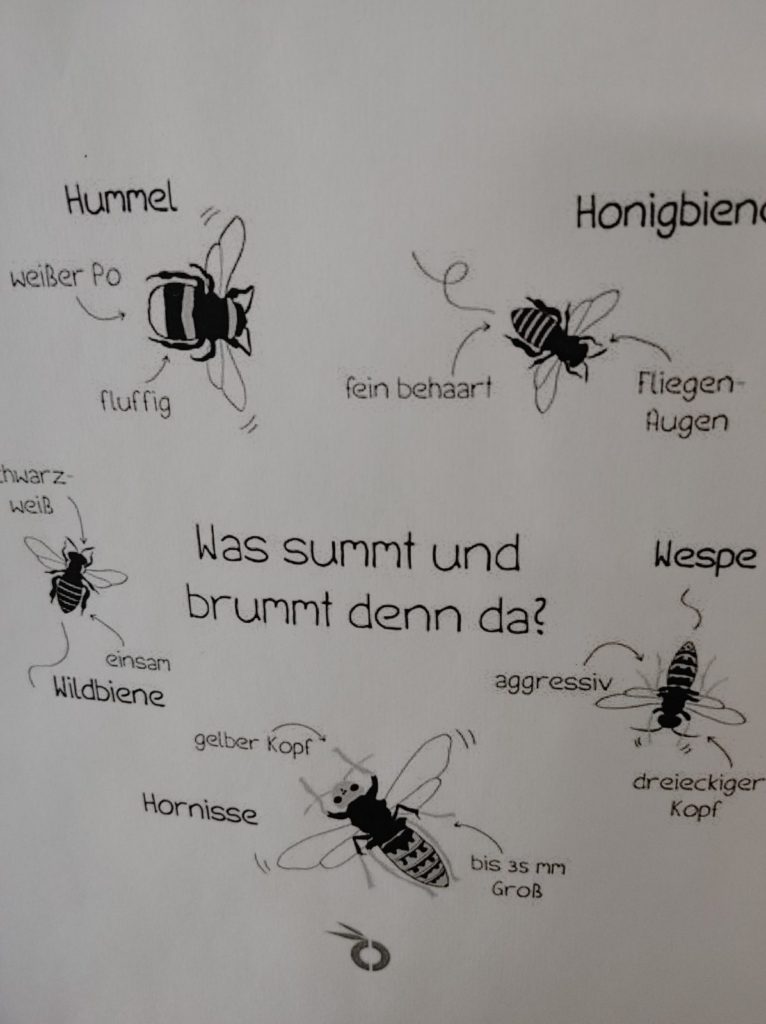 Hummel
weißer Po
fluffig
Honigbiene
fein behaart
Fliegen-
Augen
chwarz-
weiß
einsam
Wildbiene
Was summt und
brummt denn da?
Wespe
aggressiv
dreieckiger
Kopf
gelber Kopf
Hornisse
bis 35 mm
Groß